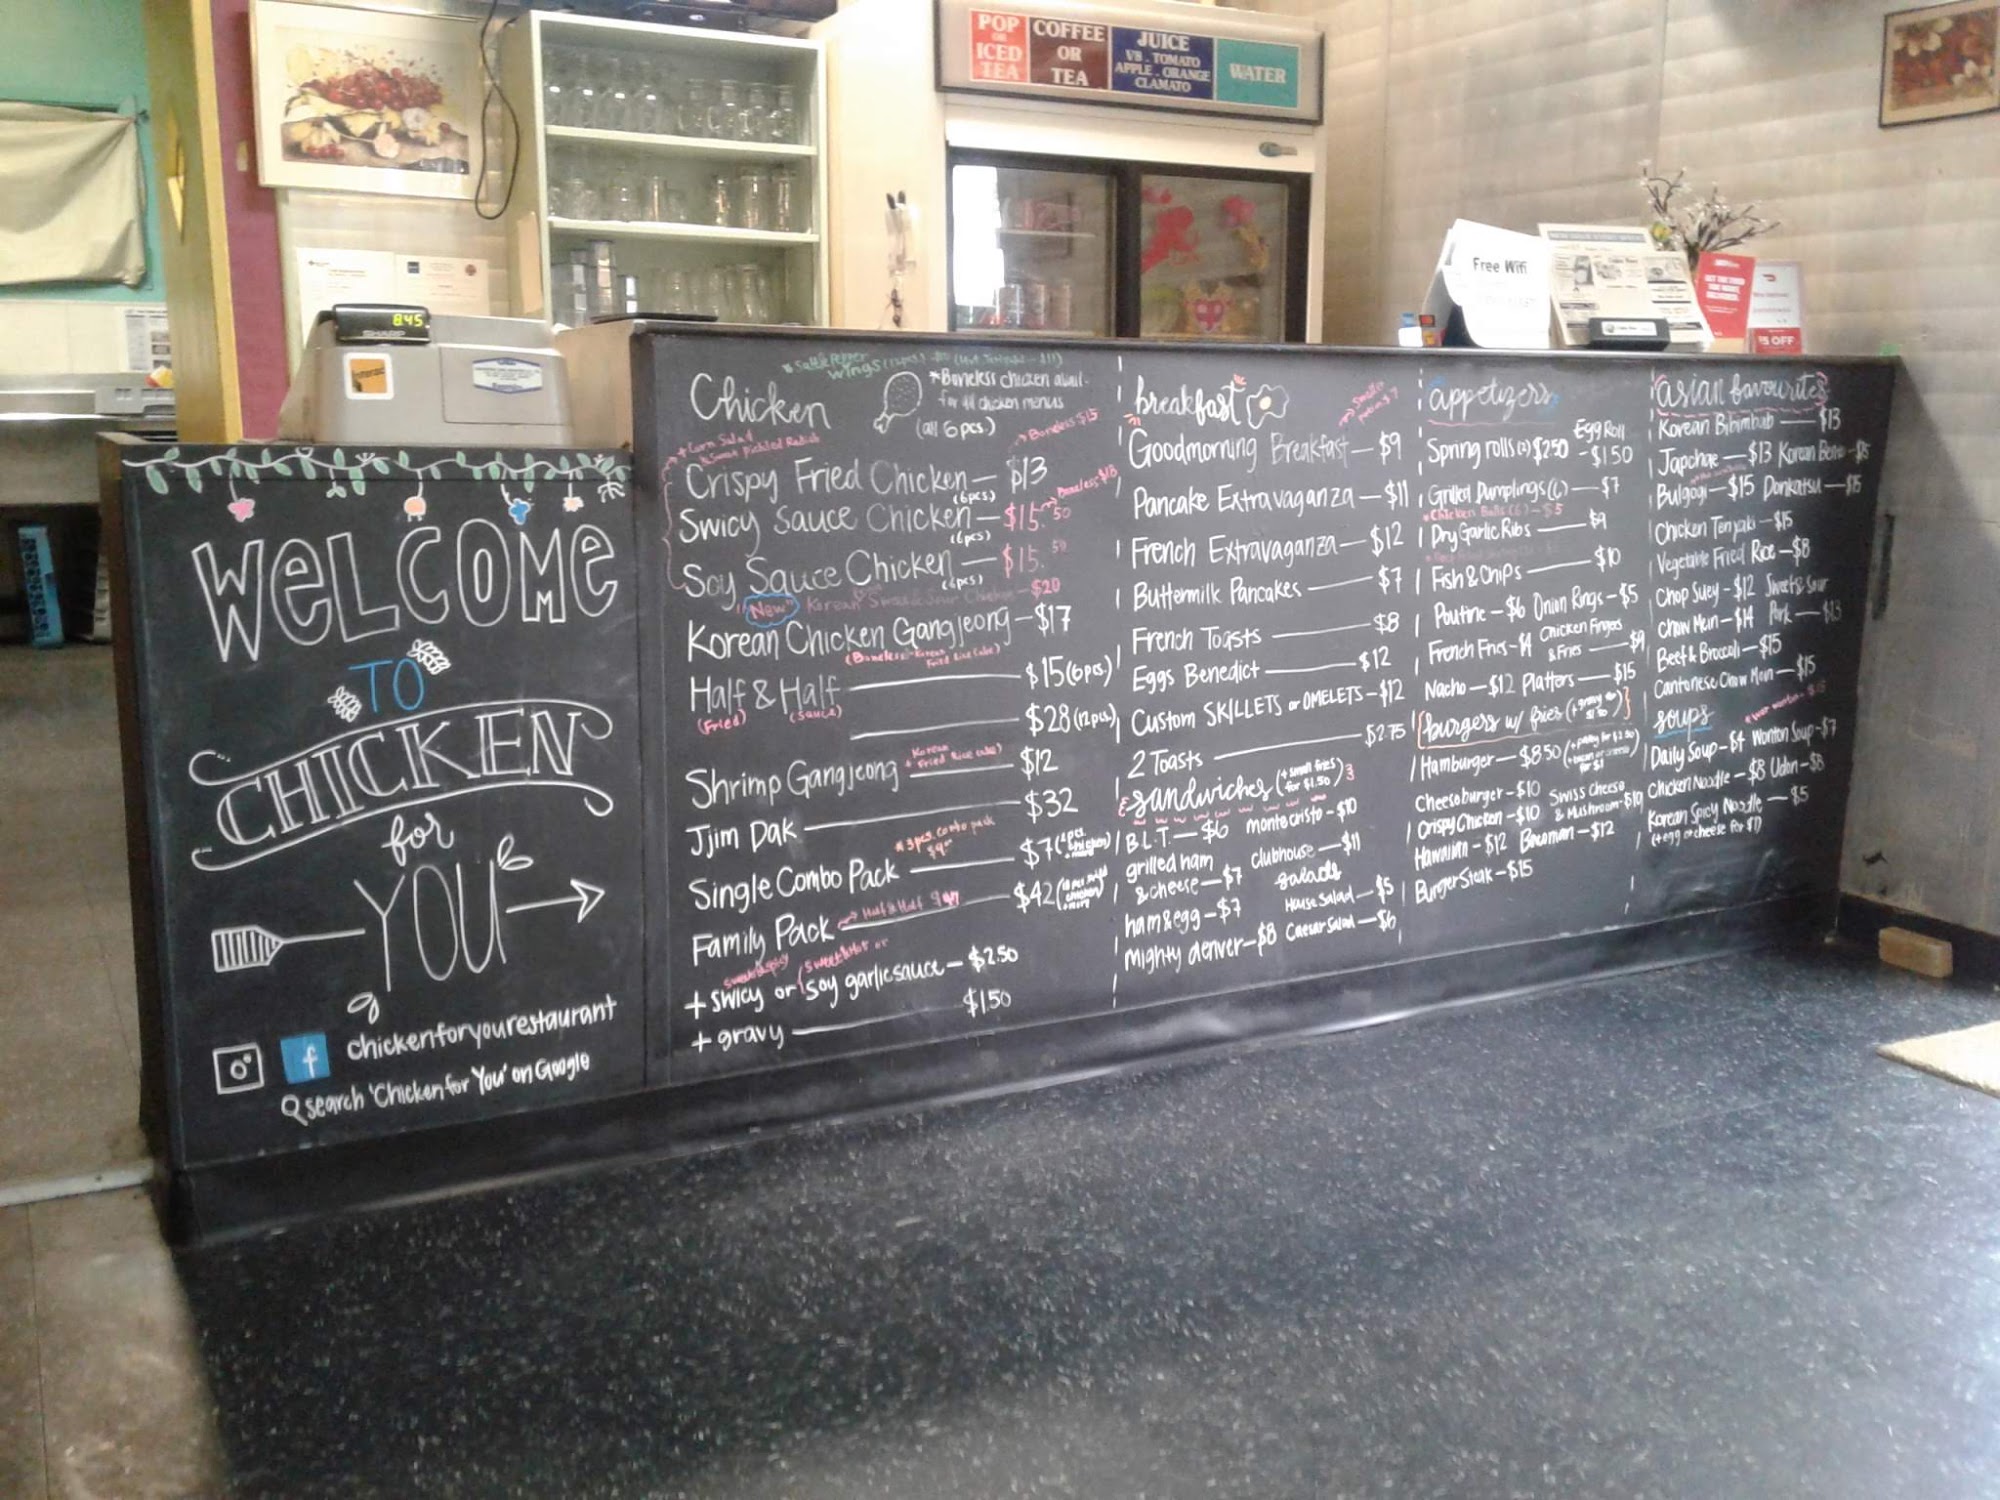 POP
OR
ICED
TEA
COFFEE
OR
TEA
JUICE
V8 . TOMATO
APPLE . ORANGE
CLAMATO
WATER
Free Wifi
$5 OFF
8:45
SHARP
WELCOME
TO
CHICKEN
for
YOU
chickenforyourestaurant
search 'Chicken for You' on Google
Chicken
*Boneless chicken avail.
for all chicken menus
(all 6 pcs.)
Boneless $15
+ Corn Salad
& Sweet pickled Radish
Crispy Fried Chicken — $13
(6pcs)
Boneless $18
Swicy Sauce Chicken — $15.50
(6pcs)
Soy Sauce Chicken — $15.50
(6pcs)
"New" Korean Sweet & Sour Chicken — $20
Korean Chicken Gangjeong — $17
(Boneless + Korean Fried Rice Cake)
Half & Half — $15 (6pcs)
(Fried) (Sauce)
$28 (12pcs)
Shrimp Gangjeong — $12
+ Korean Fried Rice Cake
Jjim Dak — $32
* 3 pcs. combo pack
Single Combo Pack — $7
Family Pack — $42
Half & Half
sweet & spicy
+ swicy or soy garlic sauce — $2.50
+ gravy — $1.50
breakfast
Goodmorning Breakfast — $9
Pancake Extravaganza — $11
French Extravaganza — $12
Buttermilk Pancakes — $7
French Toasts — $8
Eggs Benedict — $12
Custom SKILLETS or OMELETS — $12
2 Toasts — $2.75
sandwiches (+ small fries for $1.50)
B.L.T. — $6 monte cristo — $10
grilled ham & cheese — $7 clubhouse — $11
ham & egg — $7
mighty denver — $8
salads
House Salad — $5
Caesar Salad — $6
appetizers
Spring rolls (2) $2.50
Egg Roll — $1.50
Grilled Dumplings (6) — $7
*Chicken Balls (6) — $5
Dry Garlic Ribs — $9
Fish & Chips — $10
Poutine — $6 Onion Rings — $5
French Fries — $4 Chicken Fingers & Fries — $9
Nacho — $12 Platters — $15
burgers w/ fries
Hamburger — $8.50
Cheeseburger — $10 Swiss Cheese & Mushroom — $10
Crispy Chicken — $10
Hawaiian — $12 Bowman — $12
Burger Steak — $15
asian favourites
Korean Bibimbub — $13
Japchae — $13 Korean
Bulgogi — $15 Donkatsu — $15
Chicken Teriyaki — $15
Vegetable Fried Rice — $8
Chop Suey — $12 Sweet & Sour Pork — $13
Chow Mein — $14
Beef & Broccoli — $15
Cantonese Chow Mein — $15
soups
Daily Soup — $4 Wonton Soup — $7
Chicken Noodle — $8 Udon — $8
Korean Spicy Noodle — $5
(+ egg or cheese for $1)